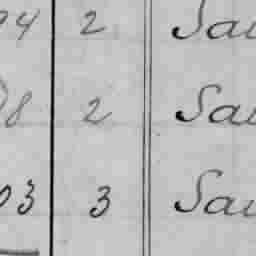 94 2 Sau
8 2 Sau
03 3 Sau